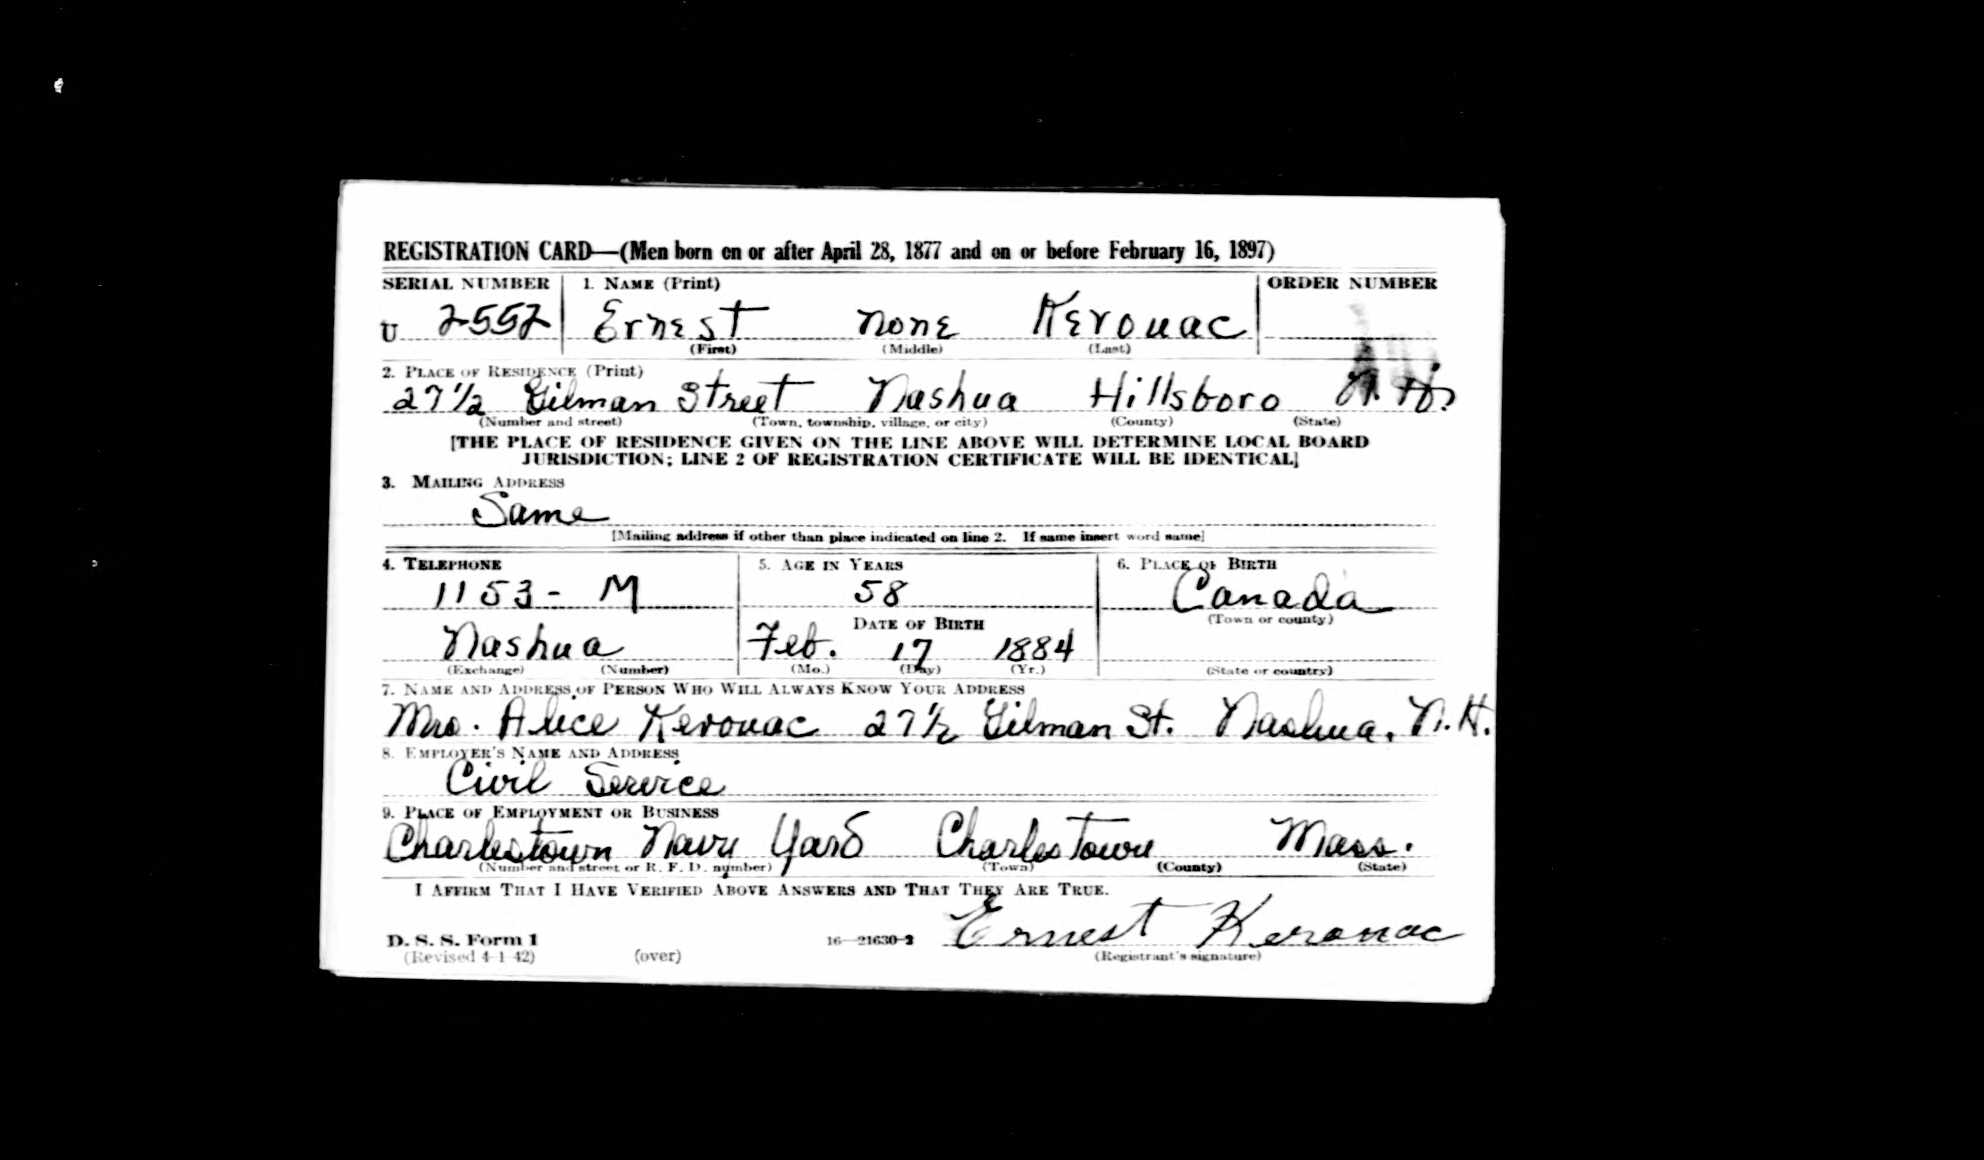 REGISTRATION CARD—(Men born on or after April 28, 1877 and on or before February 16, 1897)
SERIAL NUMBER 1. NAME (Print) ORDER NUMBER
U 2552 Ernest none Kerouac
(First) (Middle) (Last)
2. PLACE OF RESIDENCE (Print)
27 1/2 Gilman Street Nashua Hillsboro N.H.
(Number and street) (Town, township, village, or city) (County) (State)
[THE PLACE OF RESIDENCE GIVEN ON THE LINE ABOVE WILL DETERMINE LOCAL BOARD
JURISDICTION; LINE 2 OF REGISTRATION CERTIFICATE WILL BE IDENTICAL]
3. MAILING ADDRESS
Same
[Mailing address if other than place indicated on line 2. If same insert word same]
4. TELEPHONE 5. AGE IN YEARS 6. PLACE OF BIRTH
1153- M 58 Canada
DATE OF BIRTH (Town or county)
Nashua Feb. 17 1884
(Exchange) (Number) (Mo.) (Day) (Yr.) (State or country)
7. NAME AND ADDRESS OF PERSON WHO WILL ALWAYS KNOW YOUR ADDRESS
Mrs. Alice Kerouac 27 1/2 Gilman St. Nashua, N.H.
8. EMPLOYER'S NAME AND ADDRESS
Civil Service
9. PLACE OF EMPLOYMENT OR BUSINESS
Charlestown Navy Yard Charlestown Mass.
(Number and street or R. F. D. number) (Town) (County) (State)
I AFFIRM THAT I HAVE VERIFIED ABOVE ANSWERS AND THAT THEY ARE TRUE.
D. S. S. Form 1 16—21630-2 Ernest Kerouac
(Revised 4-1-42) (over) (Registrant's signature)